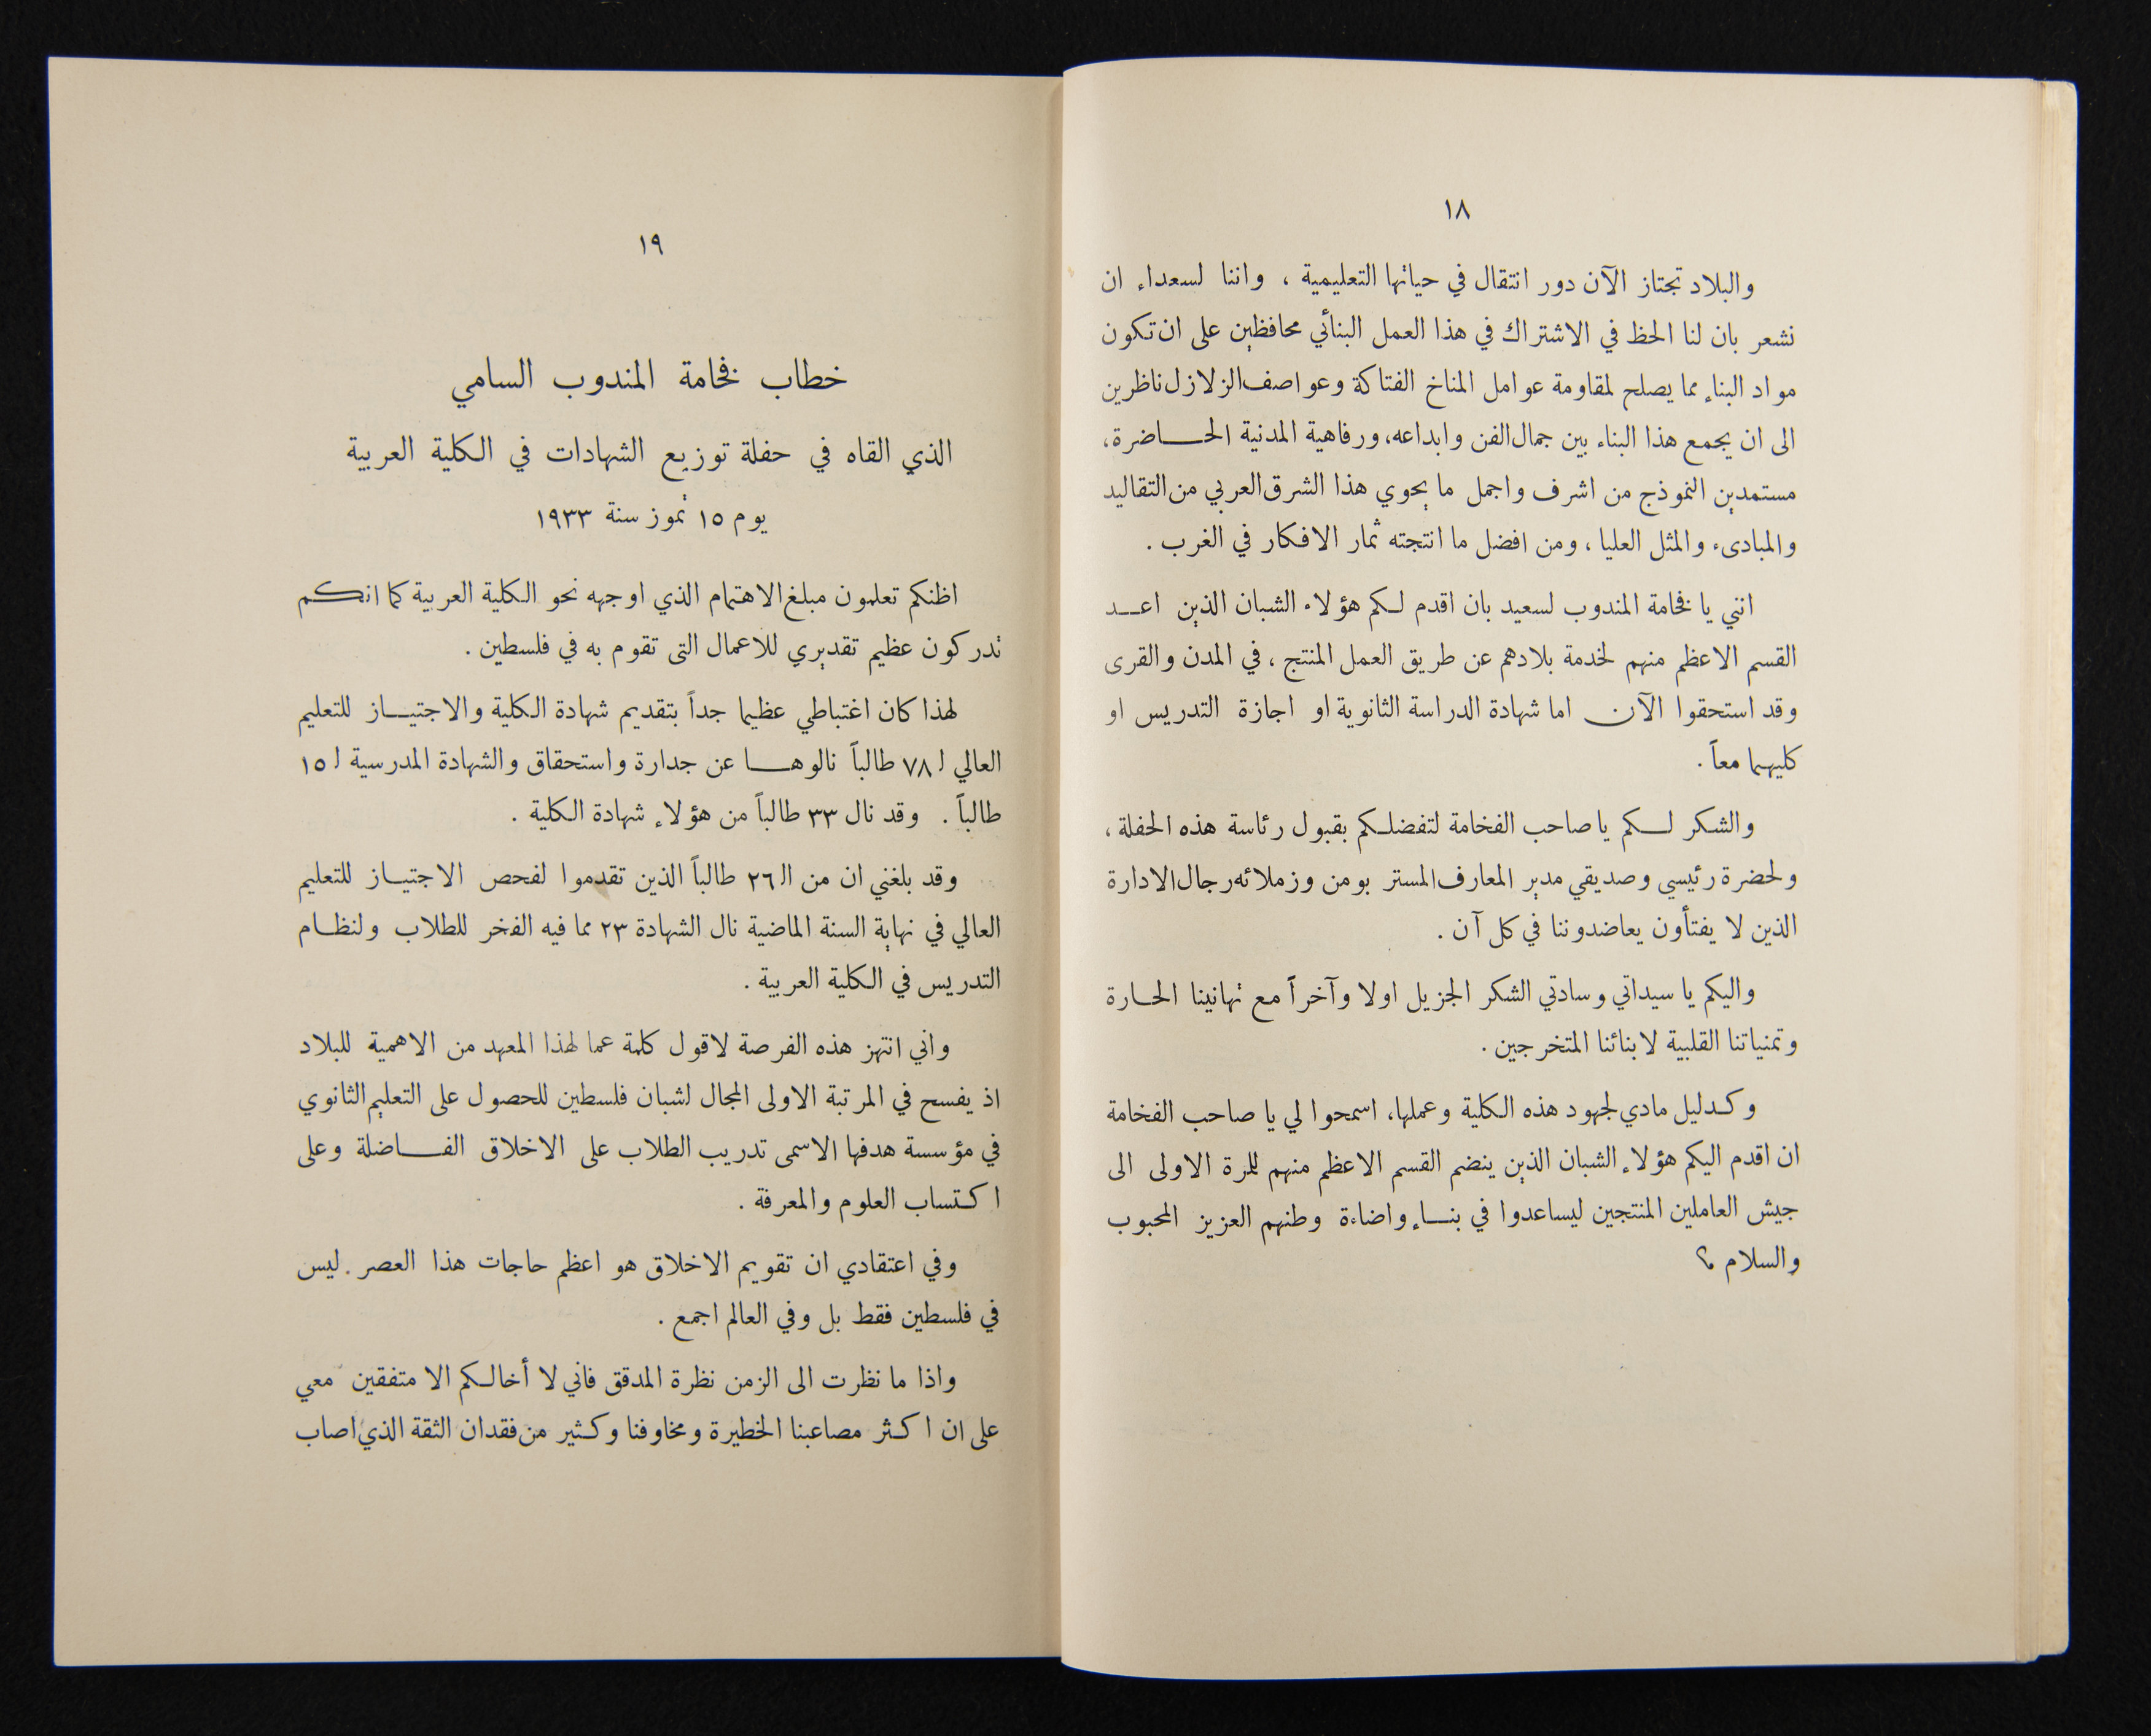 ١٨
والبلاد تجتاز الآن دور انتقال في حياتها التعليمية ، واننا لسعداء ان
نشعر بان لنا الحظ في الاشتراك في هذا العمل البنائي محافظين على ان تكون
مواد البناء مما يصلح لمقاومة عوامل المناخ الفتاكة وعواصف الزلازل ناظرين
الى ان يجمع هذا البناء بين جمال الفن وابداعه، ورفاهية المدنية الحاضرة،
مستمدين النموذج من اشرف واجمل ما يحوي هذا الشرق العربي من التقاليد
والمبادىء والمثل العليا ، ومن افضل ما انتجته ثمار الافكار في الغرب .
انني يا فخامة المندوب لسعيد بان اقدم لكم هؤلاء الشبان الذين اعد
القسم الاعظم منهم لخدمة بلادهم عن طريق العمل المنتج ، في المدن والقرى
وقد استحقوا الآن اما شهادة الدراسة الثانوية او اجازة التدريس او
كليهما معاً .
والشكر لكم يا صاحب الفخامة لتفضلكم بقبول رئاسة هذه الحفلة ،
ولحضرة رئيسي وصديقي مدير المعارف المستر بومن وزملائه رجال الادارة
الذين لا يفتأون يعاضدوننا في كل آن .
واليكم يا سيداتي وسادتي الشكر الجزيل اولا وآخراً مع تهانينا الحارة
وتمنياتنا القلبية لابنائنا المتخرجين .
وكدليل مادي لجهود هذه الكلية وعملها، اسمحوا لي يا صاحب الفخامة
ان اقدم اليكم هؤلاء الشبان الذين ينضم القسم الاعظم منهم للمرة الاولى الى
جيش العاملين المنتجين ليساعدوا في بناء واضاءة وطنهم العزيز المحبوب
والسلام ؟
١٩
خطاب فخامة المندوب السامي
الذي القاه في حفلة توزيع الشهادات في الكلية العربية
يوم ١٥ تموز سنة ١٩٣٣
اظنكم تعلمون مبلغ الاهتمام الذي اوجهه نحو الكلية العربية كما انكم
تدركون عظيم تقديري للاعمال التى تقوم به في فلسطين .
لهذا كان اغتباطي عظيما جداً بتقديم شهادة الكلية والاجتياز للتعليم
العالي لـ ٧٨ طالباً نالوها عن جدارة واستحقاق والشهادة المدرسية لـ ١٥
طالباً . وقد نال ٣٣ طالباً من هؤلاء شهادة الكلية .
وقد بلغني ان من الـ ٢٦ طالباً الذين تقدموا لفحص الاجتياز للتعليم
العالي في نهاية السنة الماضية نال الشهادة ٢٣ مما فيه الفخر للطلاب ولنظام
التدريس في الكلية العربية .
واني انتهز هذه الفرصة لاقول كلمة عما لهذا المعهد من الاهمية للبلاد
اذ يفسح في المرتبة الاولى المجال لشبان فلسطين للحصول على التعليم الثانوي
في مؤسسة هدفها الاسمى تدريب الطلاب على الاخلاق الفاضلة وعلى
اكتساب العلوم والمعرفة .
وفي اعتقادي ان تقويم الاخلاق هو اعظم حاجات هذا العصر . ليس
في فلسطين فقط بل وفي العالم اجمع .
واذا ما نظرت الى الزمن نظرة المدقق فاني لا أخالكم الا متفقين معي
على ان اكثر مصاعبنا الخطيرة ومخاوفنا وكثير من فقدان الثقة الذي اصاب